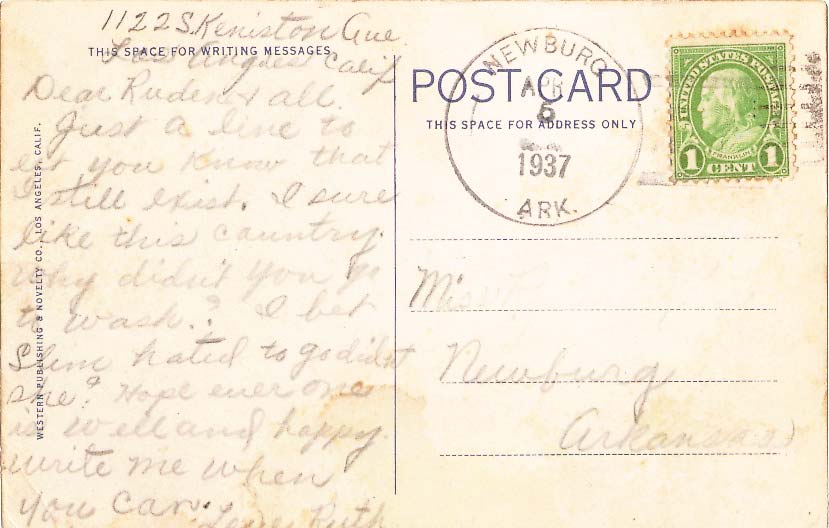 1122 S. Keniston Ave
THIS SPACE FOR WRITING MESSAGES
Los Angeles Calif
Dear Rudene & all.
Just a line to
let you know that
I still exist. I sure
like this country.
Why didn't you go
to wash.? I bet
Slim hated to go didn't
she? Hope ever one
is well and happy.
Write me when
you can.
Love, Ruth
WESTERN PUBLISHING & NOVELTY CO., LOS ANGELES, CALIF.
POST CARD
THIS SPACE FOR ADDRESS ONLY
NEWBURG
APR
5
1937
ARK.
UNITED STATES POSTAGE
FRANKLIN
1 CENT 1
Miss
Newburg
Arkansas